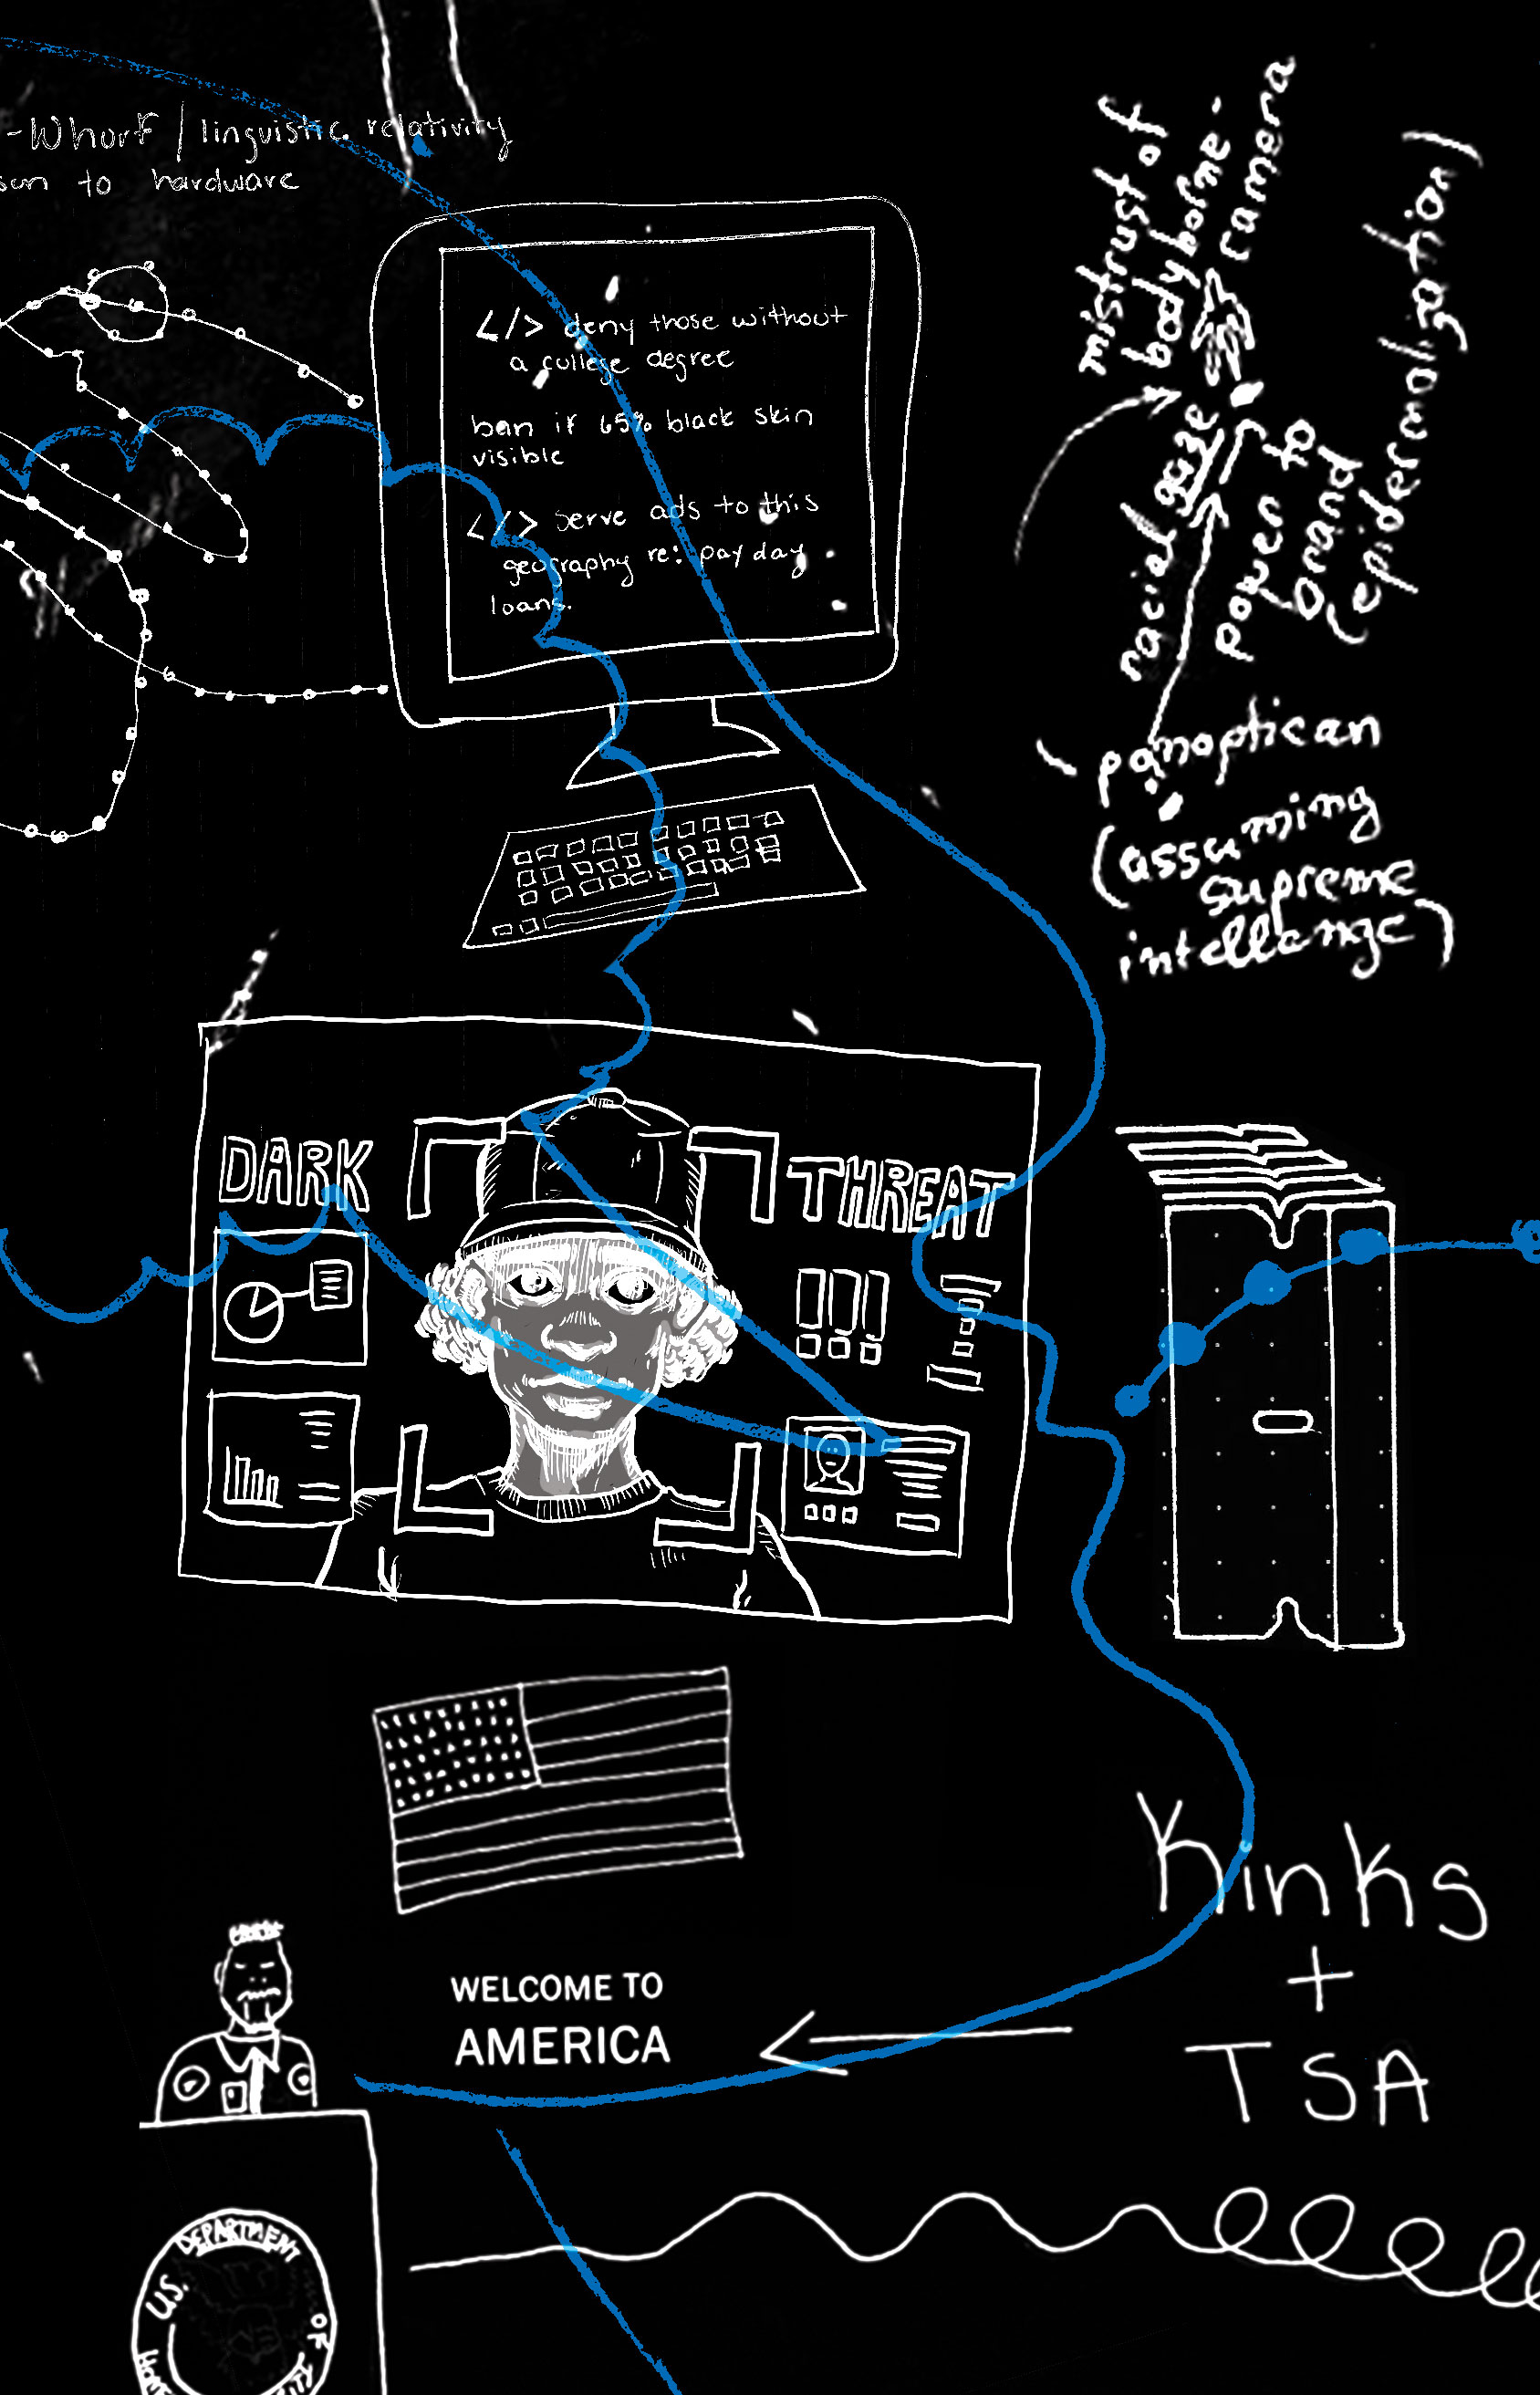 -Whorf / linguistic relativity
son to hardware
</> deny those without
a college degree
ban if 65% black skin
visible
</> serve ads to this
geography re: payday
loans.
mistrust of
bodyborne-
camera
racial gaze
power to
brand
(epidermalization)
panoptican
(assuming
supreme
intellange)
DARK
THREAT
!!!
WELCOME TO
AMERICA
Kinks
+
TSA
U.S. DEPARTMENT OF